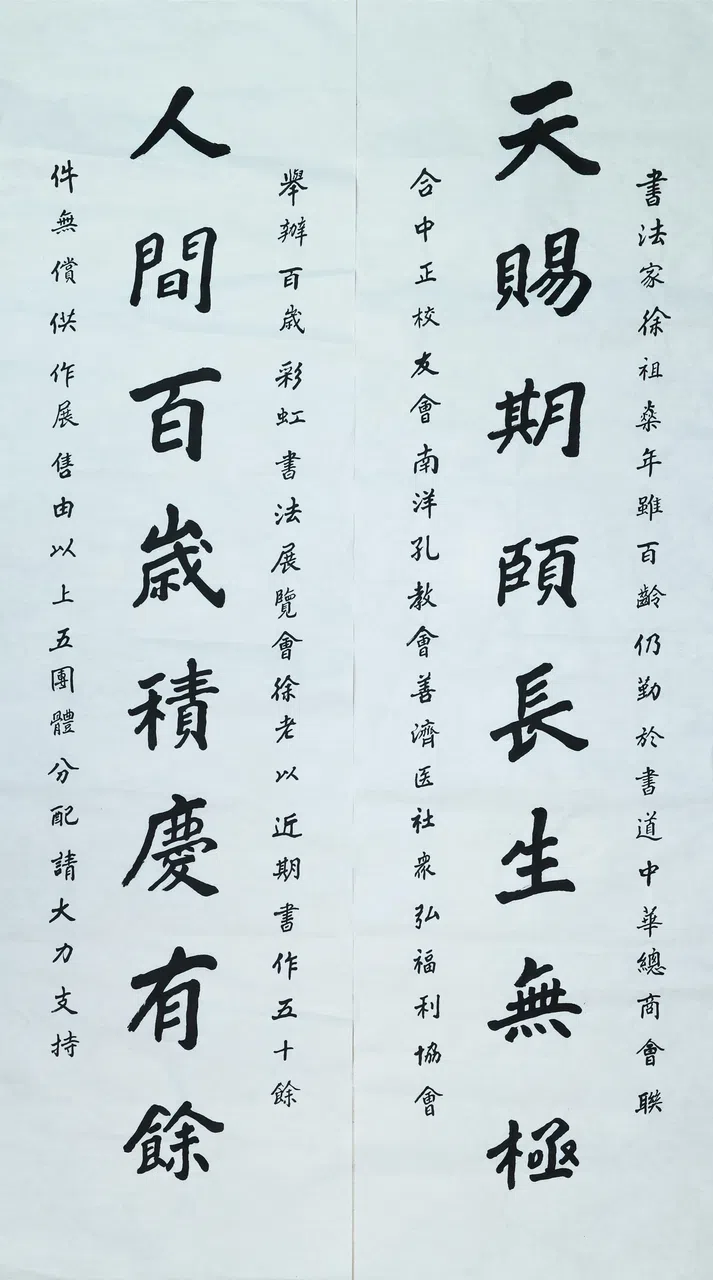 書法家徐祖燊年雖百齡仍勤於書道中華總商會聯
天賜期頤長生無極
合中正校友會南洋孔教會善濟医社衆弘福利協會
舉辦百歲彩虹書法展覽會徐老以近期書作五十餘
人間百歲積慶有餘
件無償供作展售由以上五團體分配請大力支持